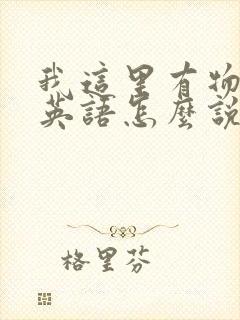 我這里有物
英語怎麼說
格里芬